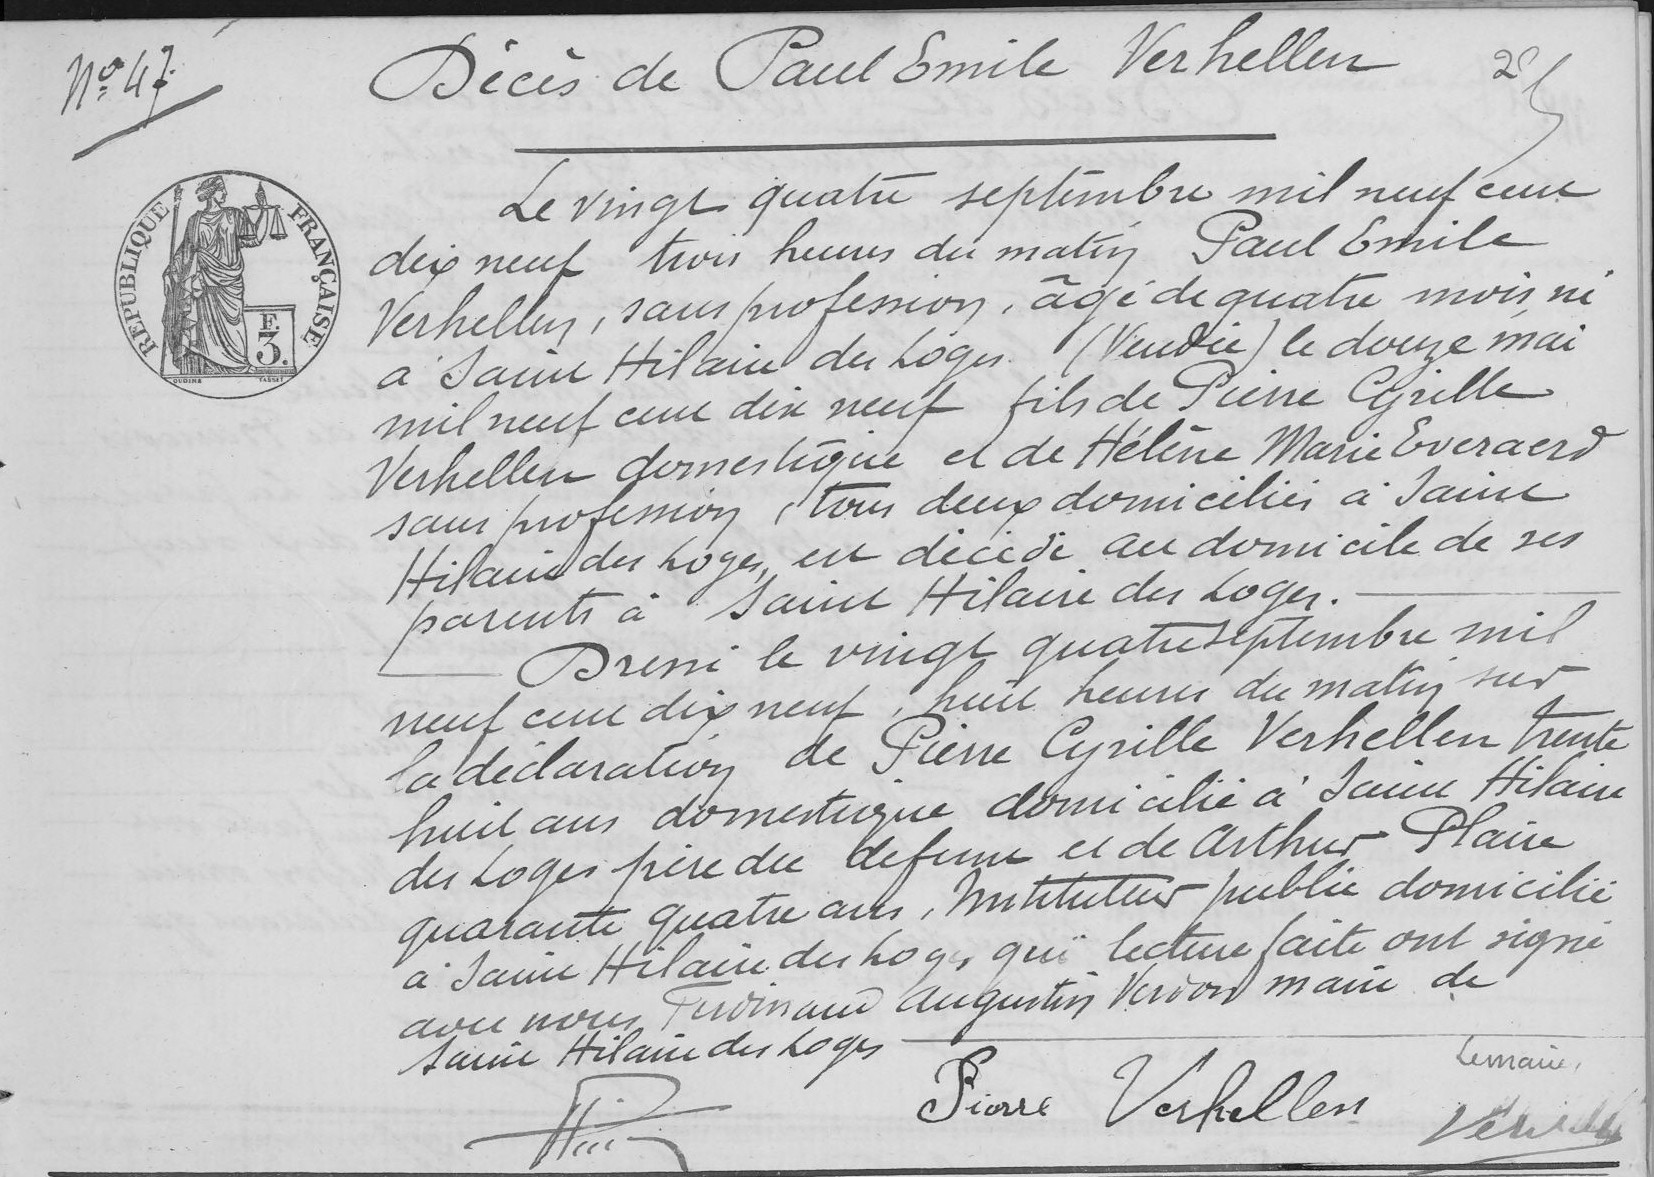 Nº 47
Décès de Paul Emile Verhellen
25
REPUBLIQUE FRANÇAISE
F.
3.
OUDINÉ TASSET
Le vingt quatre septembre mil neuf cent
dix neuf trois heures du matin Paul Emile
Verhellen, sans profession, âgé de quatre mois né
à Saint Hilaire des Loges (Vendée) le douze mai
mil neuf cent dix neuf fils de Pierre Cyrille
Verhellen domestique et de Hélène Marie Everaerd
sans profession, tous deux domiciliés à Saint
Hilaire des Loges, est décédé au domicile de ses
parents à Saint Hilaire des Loges.
Dressé le vingt quatre septembre mil
neuf cent dix neuf, huit heures du matin sur
la déclaration de Pierre Cyrille Verhellen trente
huit ans domestique domicilié à Saint Hilaire
des Loges père du defunt et de Arthur Plaire
quarante quatre ans, Instituteur public domicilié
à Saint Hilaire des Loges qui lecture faite ont signé
avec nous Ferdinand Augustin Verdon maire de
Saint Hilaire des Loges
Le maire,
Pierre Verhellen